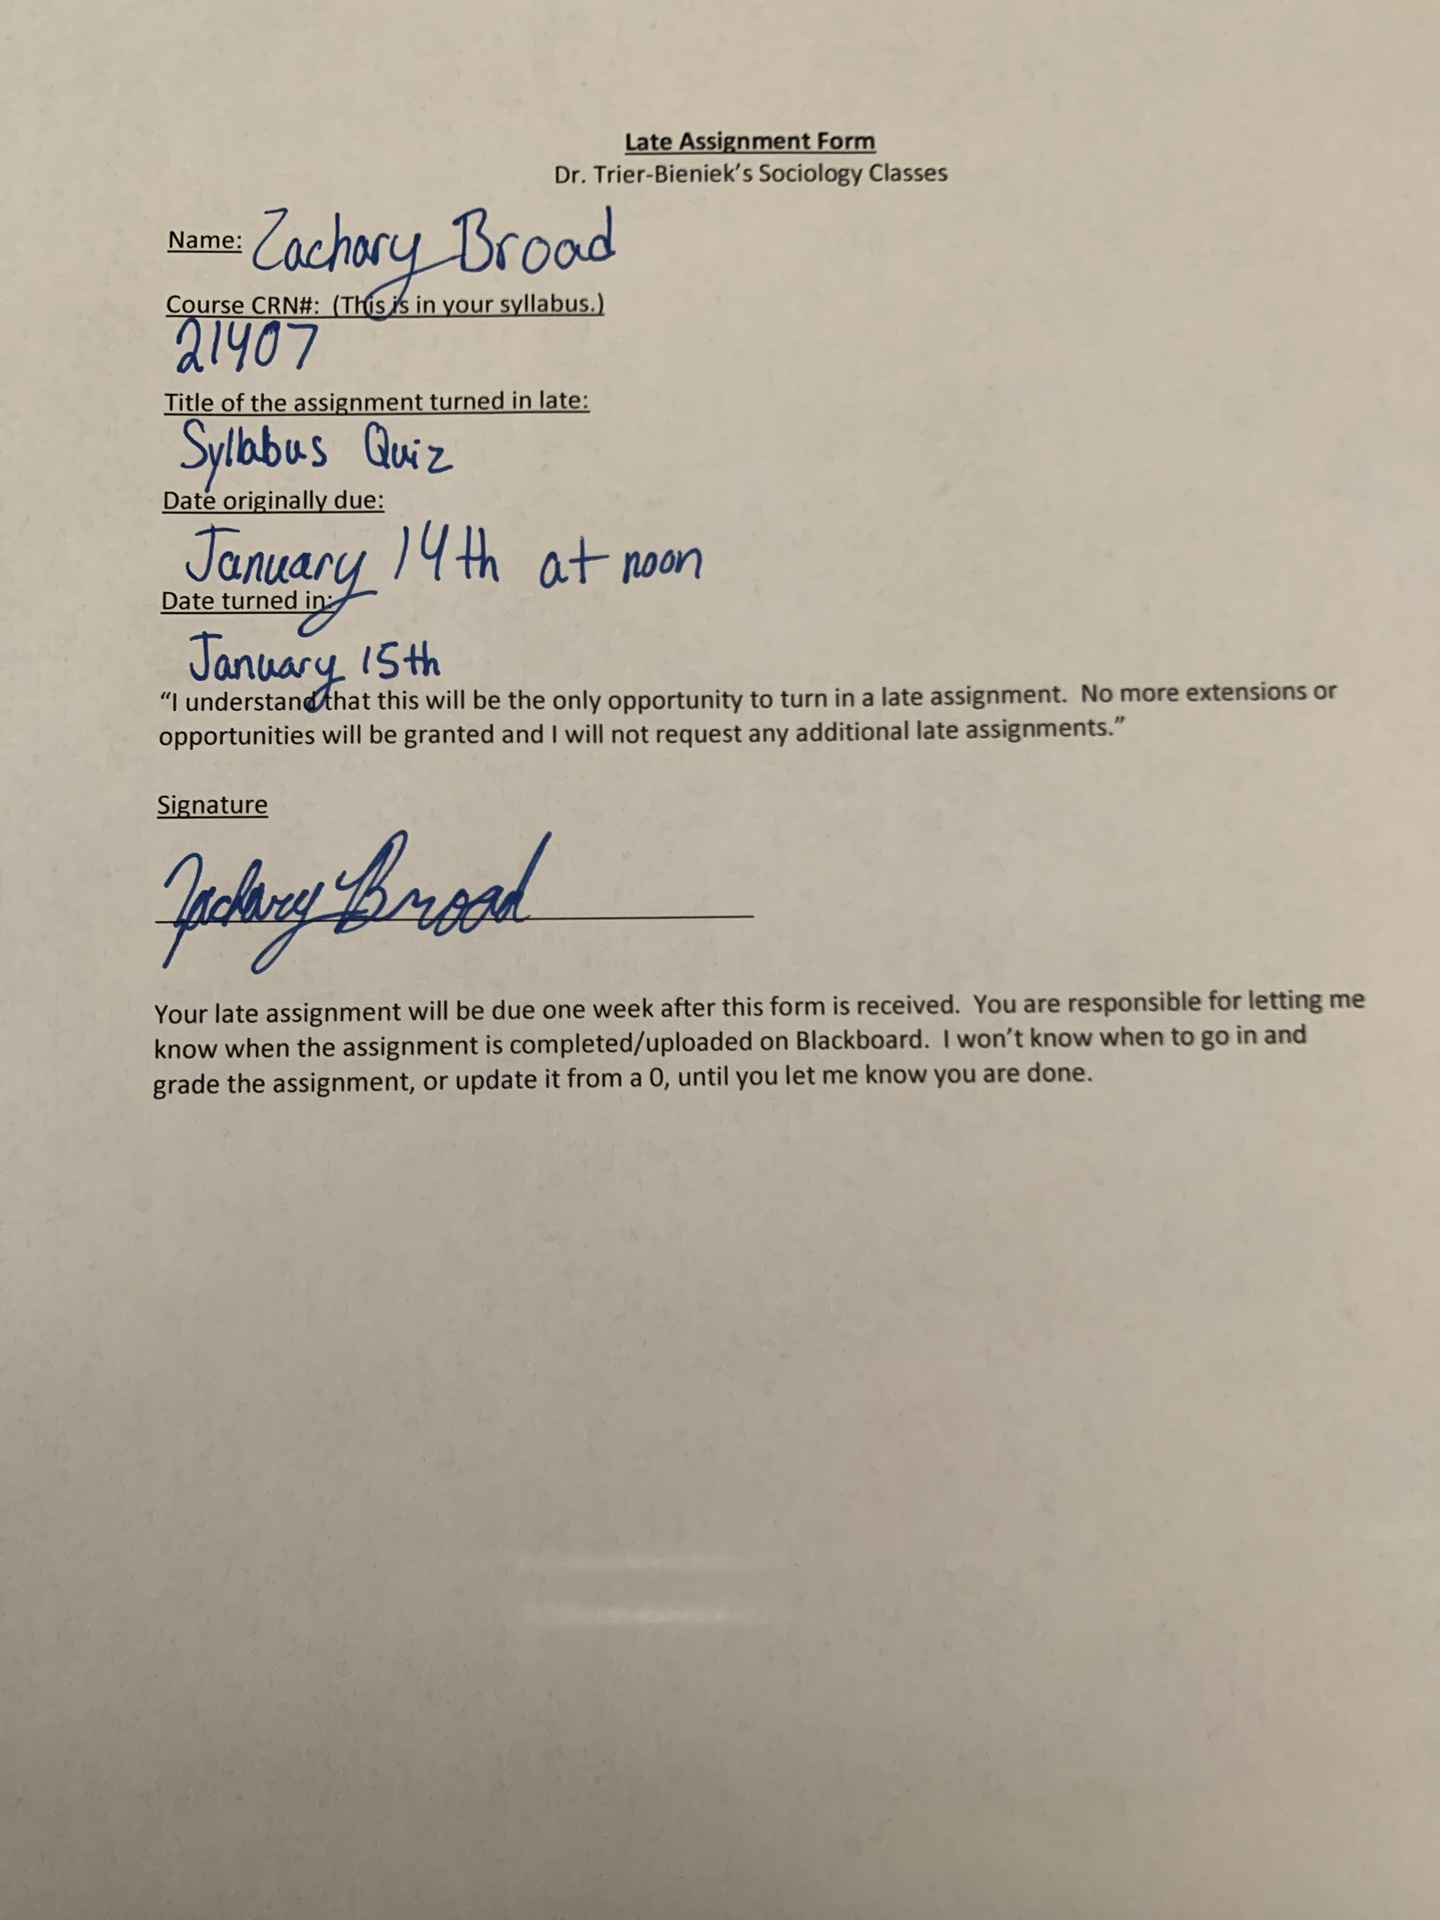 Late Assignment Form
Dr. Trier-Bieniek's Sociology Classes
Name: Zachary Broad
Course CRN#:  (This is in your syllabus.)
21407
Title of the assignment turned in late:
Syllabus Quiz
Date originally due:
January 14th at noon
Date turned in:
January 15th
“I understand that this will be the only opportunity to turn in a late assignment.  No more extensions or
opportunities will be granted and I will not request any additional late assignments.”
Signature
Zachary Broad
Your late assignment will be due one week after this form is received.  You are responsible for letting me
know when the assignment is completed/uploaded on Blackboard.  I won't know when to go in and
grade the assignment, or update it from a 0, until you let me know you are done.